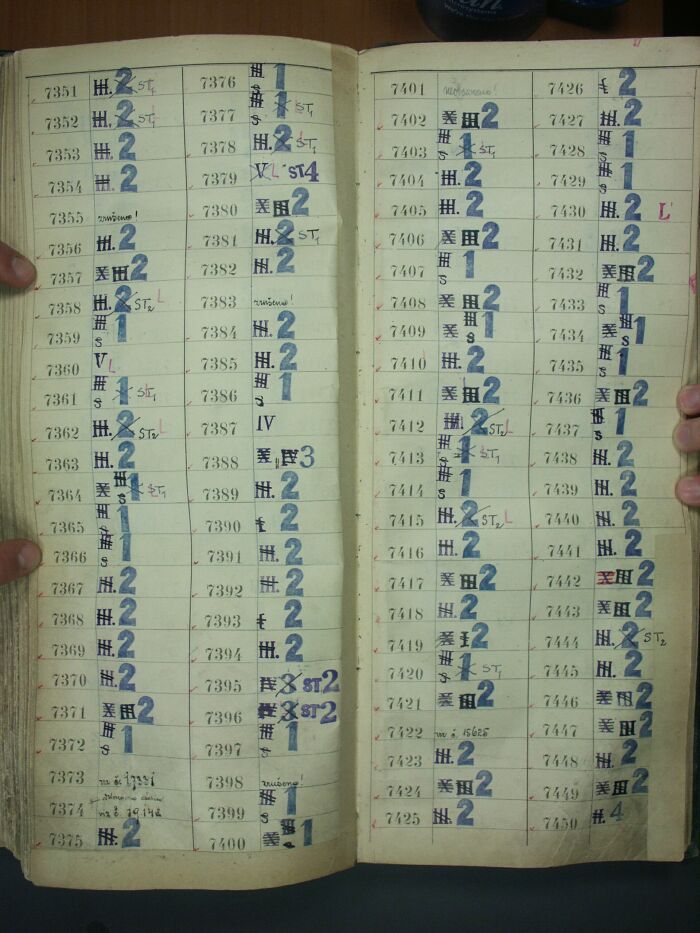 7351 III. 2 ST1
7352 III. 2 ST1 L
7353 III. 2
7354 III. 2
7355 zrušeno!
7356 III. 2
7357 X III 2
7358 III. 2 ST2 L
7359 III S 1
7360 V L
7361 III S 1 ST1
7362 III. 2 ST2 L
7363 III. 2
7364 X III S 1 ST1
7365 III S 1
7366 III S 1
7367 III. 2
7368 III. 2
7369 III. 2
7370 III. 2
7371 X III 2
7372 III S 1
7373 viz č.
7374 viz č. 19.142
7375 III. 2
7376 III S 1
7377 III S 1 ST1
7378 III. 2 ST1
7379 V L ST4
7380 X III 2
7381 III. 2 ST1
7382 III. 2
7383 zrušeno!
7384 III. 2
7385 III. 2
7386 III S 1
7387 IV
7388 X IV 3
7389 III. 2
7390 I 2
7391 III. 2
7392 III. 2
7393 I 2
7394 III. 2
7395 IV 3 ST2
7396 IV 3 ST2
7397 III S 1
7398 zrušeno!
7399 III S 1
7400 X III S 1
7401
7402 X III 2
7403 III S 1 ST1
7404 III. 2
7405 III. 2
7406 X III 2
7407 III S 1
7408 X III 2
7409 X III S 1
7410 III. 2
7411 X III 2
7412 III. 2 ST2 L
7413 III S 1 ST1
7414 III S 1
7415 III. 2 ST2 L
7416 III. 2
7417 X III 2
7418 III. 2
7419 X I 2
7420 III S 1 ST1
7421 X III 2
7422 viz č. 15625
7423 III. 2
7424 X III 2
7425 III. 2
7426 I 2
7427 III. 2
7428 III S 1
7429 III S 1
7430 III. 2 L
7431 III. 2
7432 X III 2
7433 III S 1
7434 X III S 1
7435 III S 1
7436 X III 2
7437 III S 1
7438 III. 2
7439 III. 2
7440 III. 2
7441 III. 2
7442 X III 2
7443 X III 2
7444 III. 2 ST2
7445 III. 2
7446 X III 2
7447 X III 2
7448 III. 2
7449 X III 2
7450 II. 4